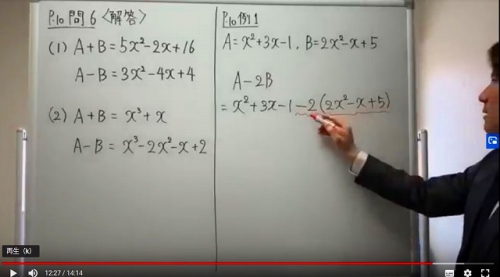 P.10 問6 <解答>
(1) A+B = 5x²-2x+16
A-B = 3x²-4x+4
(2) A+B = x³+x
A-B = x³-2x²-x+2
P.10 例1
A=x²+3x-1, B=2x²-x+5
A-2B
= x²+3x-1-2(2x²-x+5)
再生 (k)
12:27 / 14:14